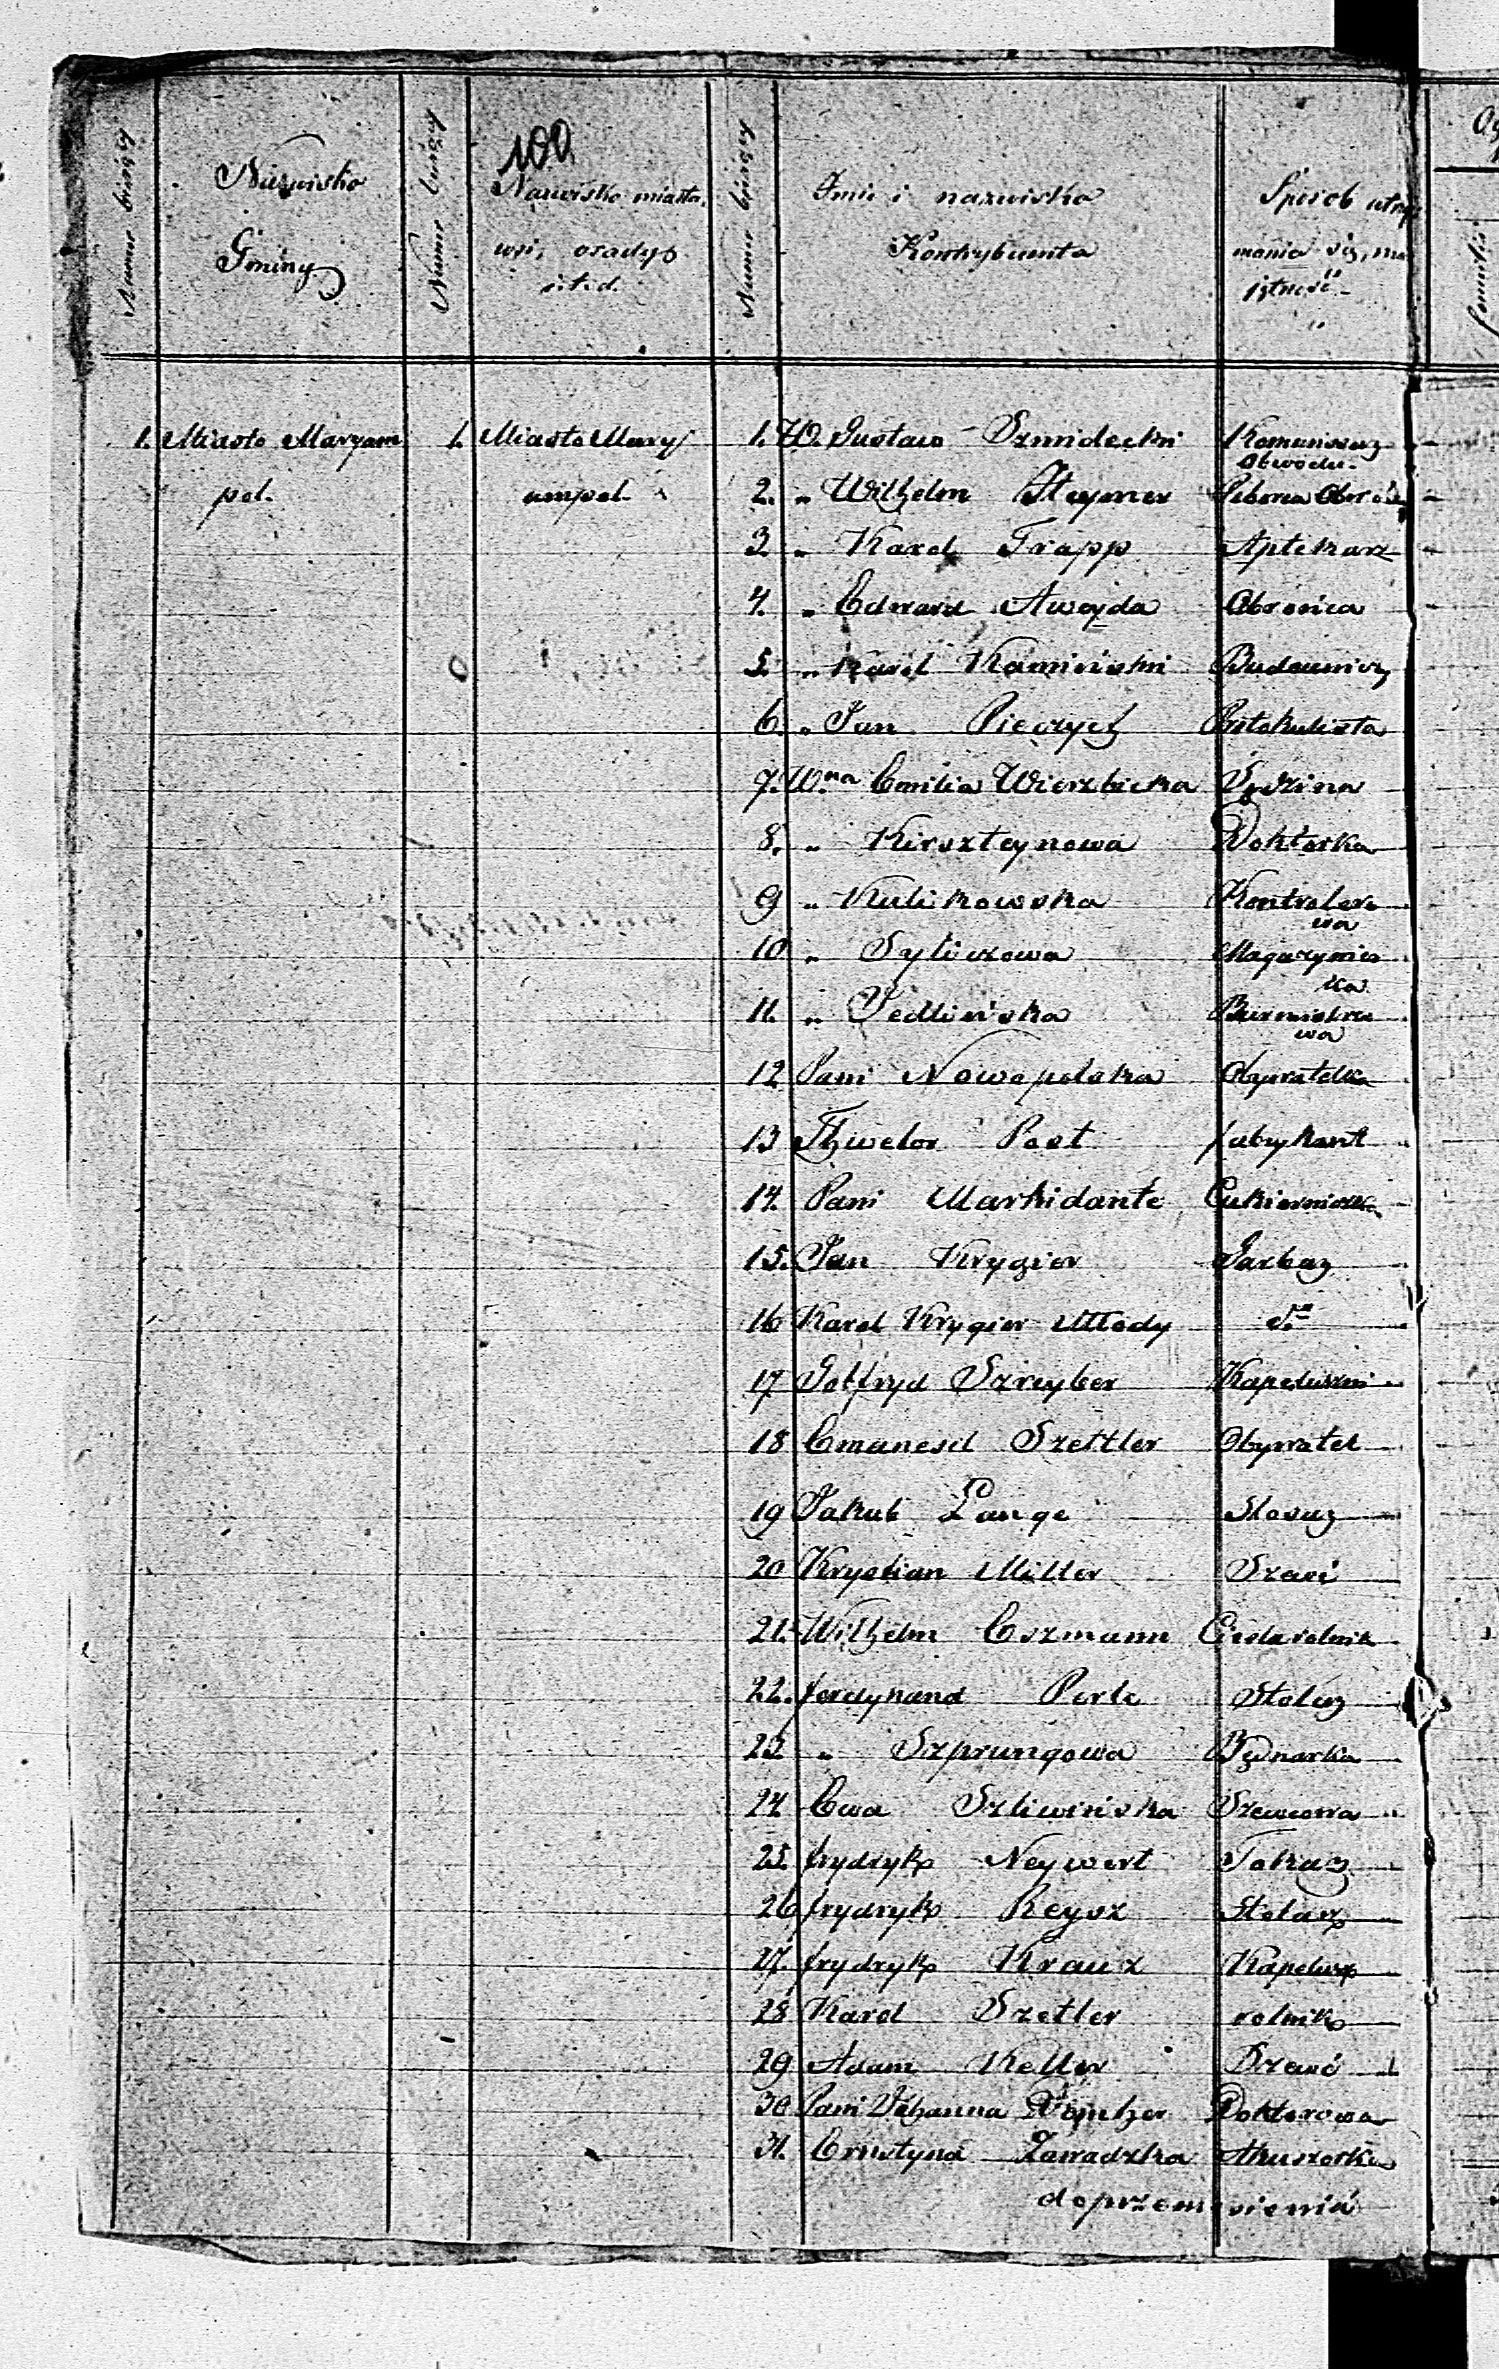 100
Numer bieżący
Nazwisko
Gminy
Numer bieżący
Nazwisko miasta,
wsi, osady
i.t.d.
Numer bieżący
Imie i nazwisko
Kontrybuenta
Sposob utrzy
mania się, ma
jętność
1. Miasto Maryam 1. Miasto Mary 1. W. Gustaw Szmidecki Kommissarz
Obwodu
pol. ampol 2. „ Wilhelm Steymer
3. „ Karol Trapp Aptekarz
4. „ Edward Aweyda Obronca
5. „ Karol Kamiński Budowniczy
6. „ Jan Pieczych Protokulista
7. W.na Emilia Wierzbicka Sędzina
8. „ Kirszteynowa Doktorka
9 „ Kulikowska Kontrolero
wa
10 „ Syliczowa Magazynier
ka
11. „ Jedlińska Burmistrzo
wa
12 Pani Nowopolska Obywatelka
13 Post fabrykant
14. Pani Markidante Cukierniczka
15. Jan Krygier Garbarz
16 Karol Krygier Młody do
17 Gotfryd Szreyber Kapelusznik
18 Emanuel Szettler Obywatel
19 Jakub Lange Slosarz
20 Krystian Miller Szewc
21. Wilhelm Eszmann Cieśla rolnik
22. ferdynand Perle Stolarz
23. „ Szprungowa Bednarka
24 Ewa Szliwińska Szewcowa
25. frydryk Neywert Tokarz
26 frydryk Reysz Stolarz
27. frydryk Krauz Kapelusz
28 Karol Szetler rolnik
29 Adam Keller Szewc
30 Pani Johanna Doktorowa
31. Ernstyna Zawadzka Akuszerka
do przeniesienia